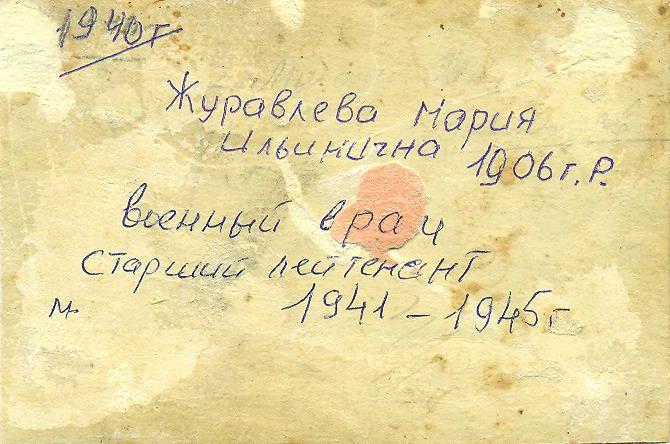 1940г
Журавлева Мария
Ильинична 1906г.р.
военный врач
старший лейтенант
м. 1941-1945г